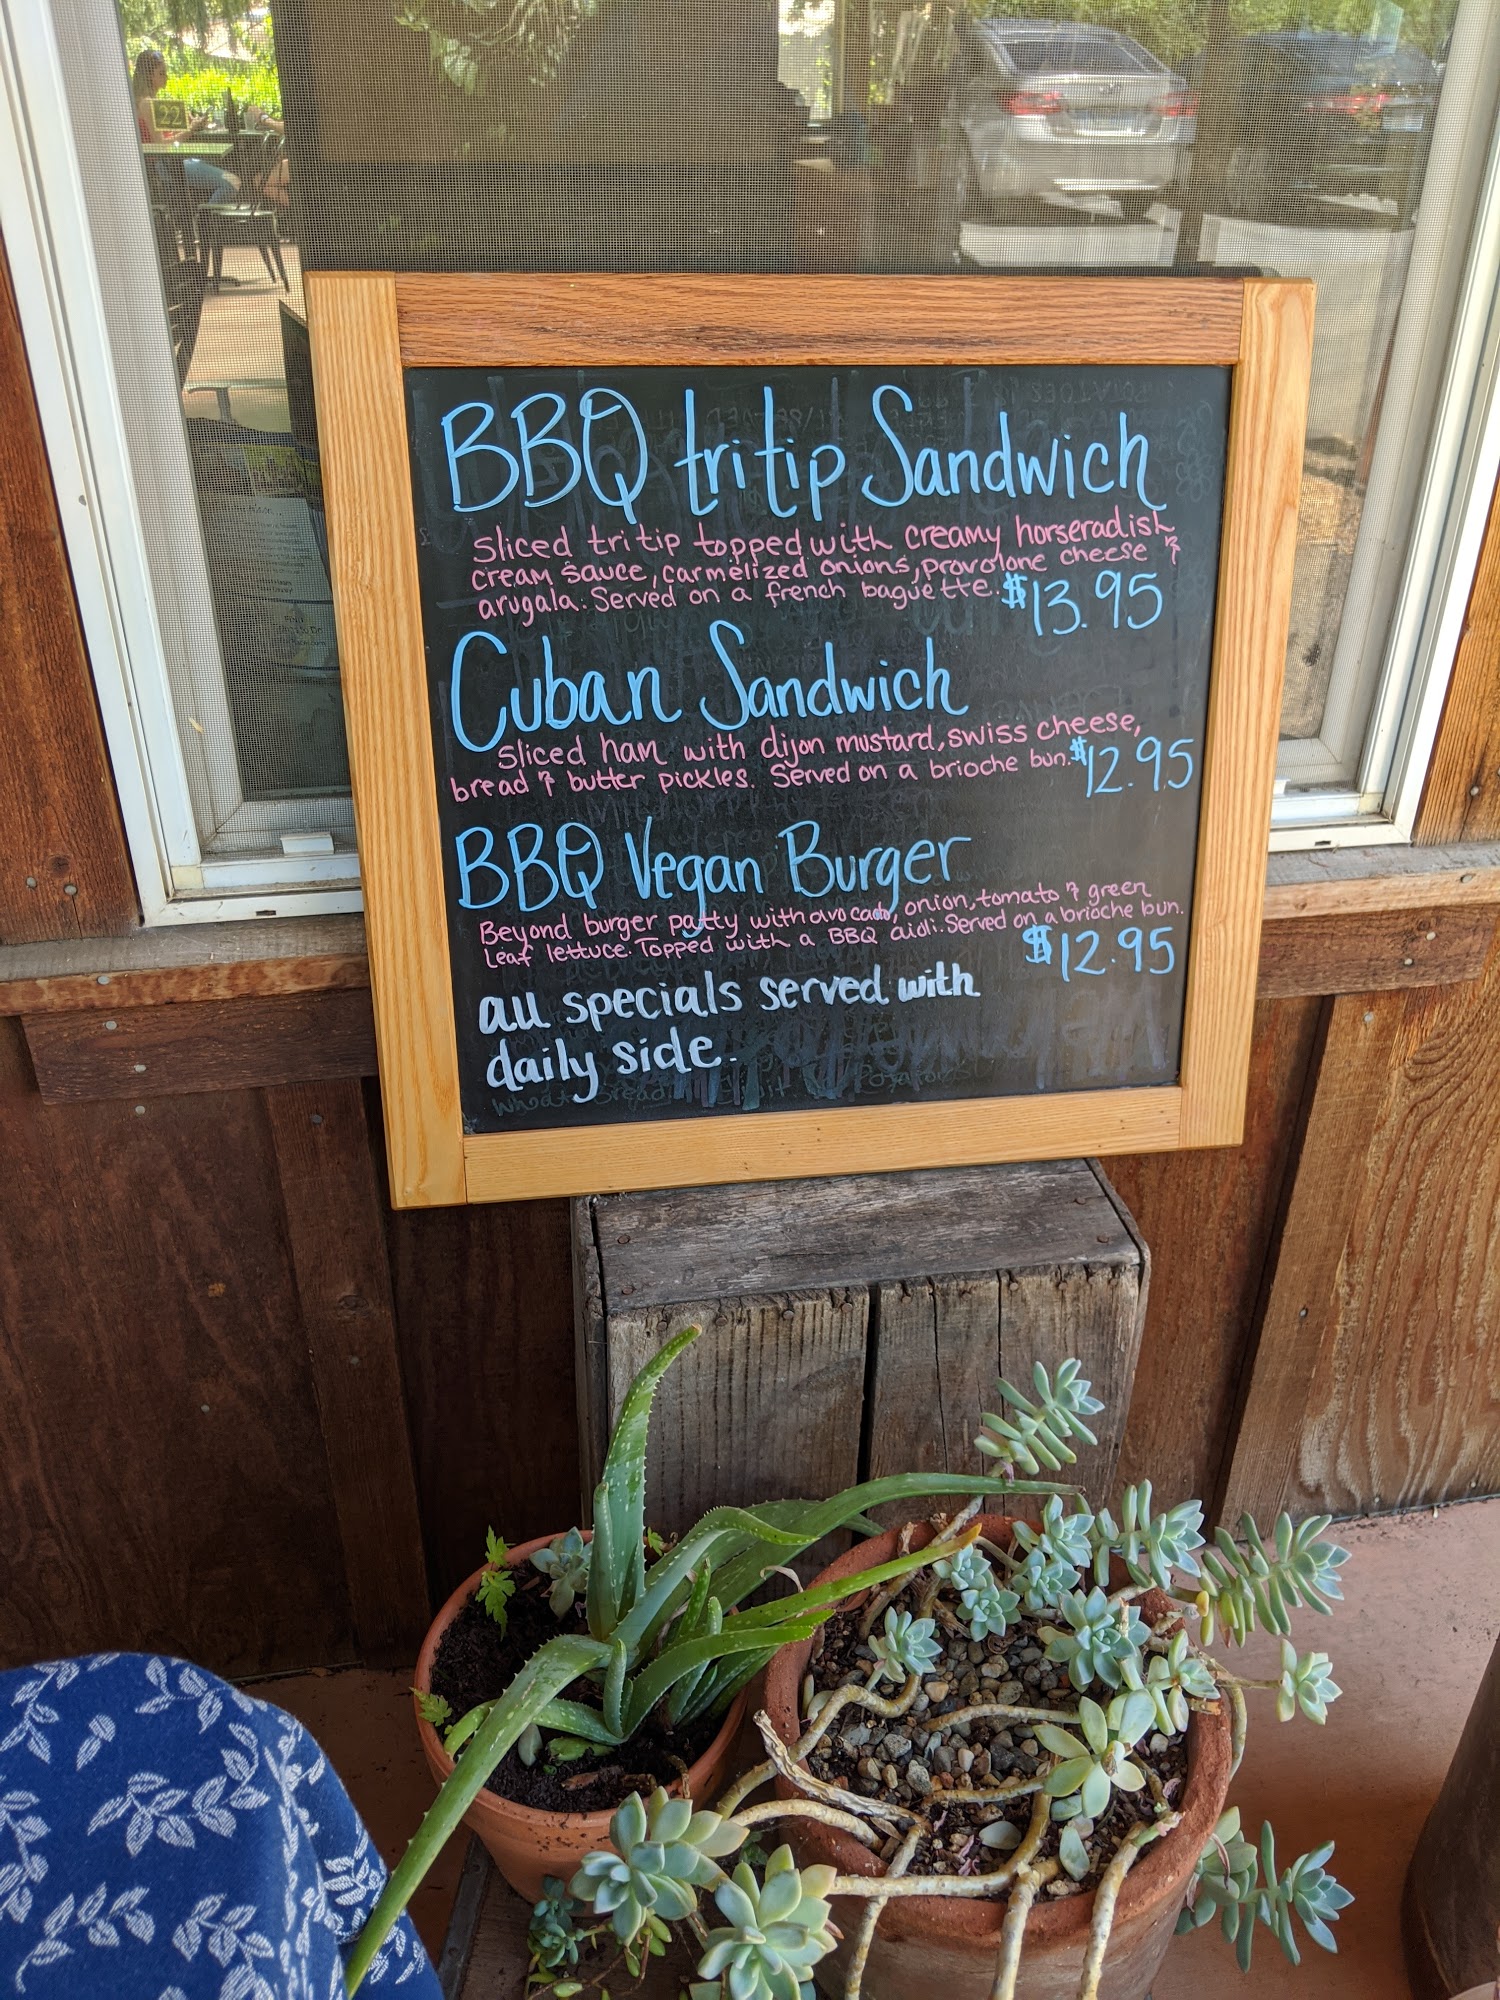 22
BBQ tri tip Sandwich
Sliced tri tip topped with creamy horseradish
cream sauce, carmelized onions, provolone cheese &
arugala. Served on a french baguette. $13.95
Cuban Sandwich
Sliced ham with dijon mustard, swiss cheese,
bread & butter pickles. Served on a brioche bun. $12.95
BBQ Vegan Burger
Beyond burger patty with avocado, onion, tomato & green
leaf lettuce. Topped with a BBQ aioli. Served on a brioche bun.
$12.95
all specials served with
daily side.